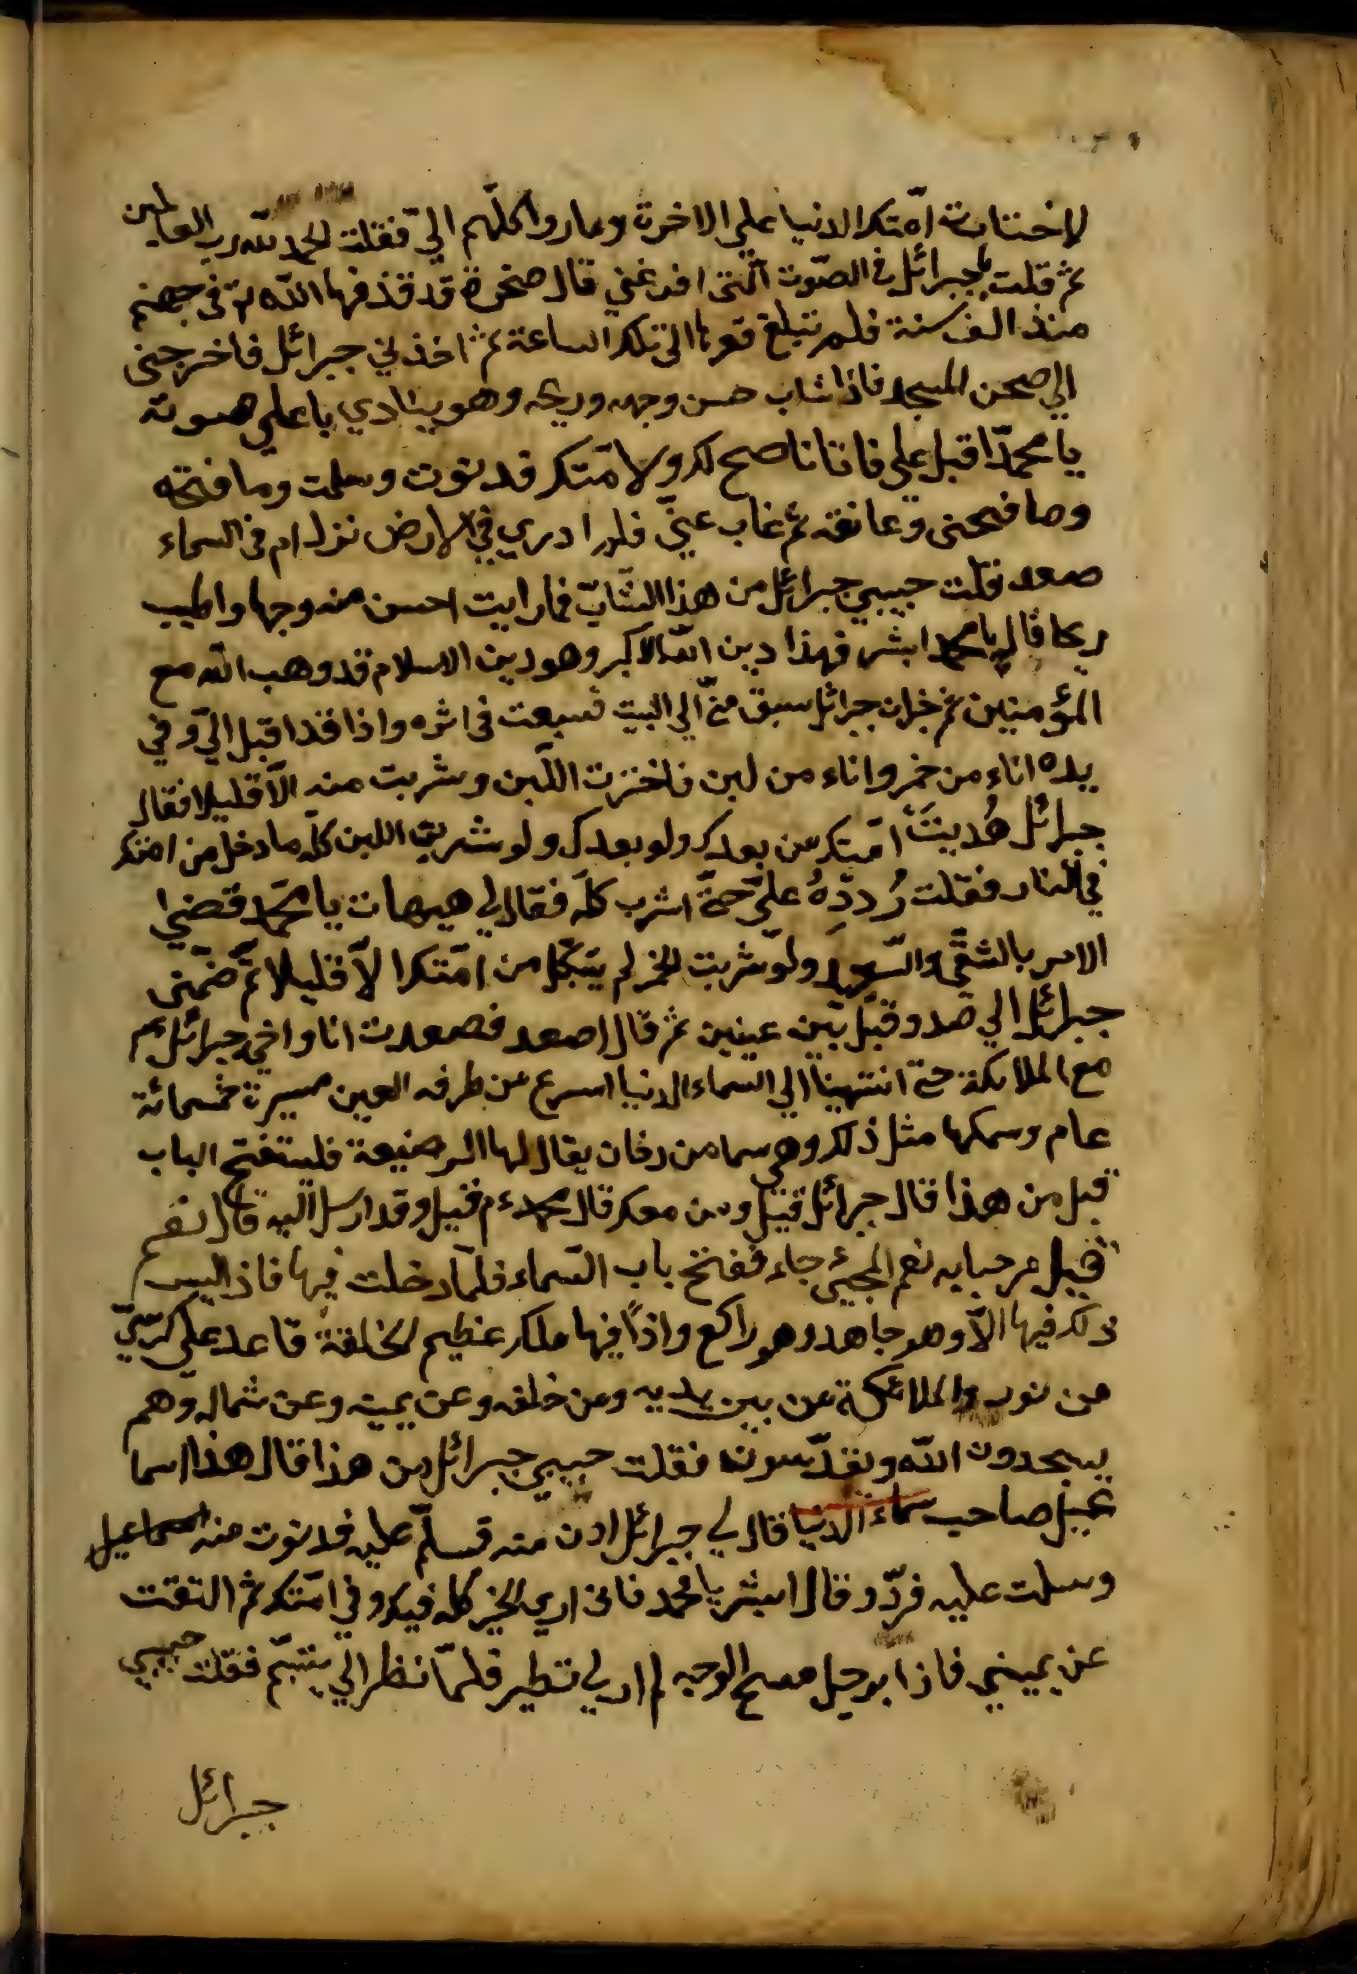 لاختارت امتك الدنيا علي الاخرة وصاروا كلهم اليّ فقلت الحمد لله رب العالمين
ثم قلت يا جبرائل فالصّوت الّتى افزغني قال صخرة قد قذفها الله تع في جهنم
منذ الف سنة فلم تبلغ قعرها الى تلك الساعة ثم اخذني جبرائل فاخرجنى
الي صحن المسجد فاذا شاب حسن وجهه وريحه وهو ينادي باعلي صوته
يا محمدّ اقبل علي فانا ناصح لك ولامتك فدنوت وسلمت وصافحته
وصافحنى وعانقه ثم غاب عنيّ فلم ادري في الارض نزل ام في السماء
صعد قلت حبيبي جبرائل من هذا الشّابّ فما رايت احسن منه وجها واطيب
ريحا قال يا محمد ابشر فهذا دين الله الاكبر وهو دين الاسلام قد وهب الله مع
المؤمنين ثم جبرائل سبق منّي الي البيت في اثره واذا قد اقبل اليّ وفي
يده اناء من خمر واناء من لبن فاخترت اللّبن وشربت منه الّا قليلا فقال
جبرائل هُديتَ امتك من بعدك ولو شربت اللبن كلّه ما دخل من امتك
في النار فقلت رُدّهُ عليّ حتّى اشرب كلّه فقال لي هيهات يا محمّد قضي
الامر بالشقّى والسّعيد ولو شربت الخمر لم من امّتك الّا قليلا ثمّ ضمّني
جبرائل الي صدره وقبّل بين عينين ثم قال اصعد فصعدت انا واخي جبرائل
مع الملائكة حتى انتهينا الي السماء الدنيا اسرع من طرفه العين مسيرة خمسمائة
عام وسمكها مثل ذلك وهي سما من دخان يقال لها الرفيعة فاستفتح الباب
قيل من هذا قال جبرائل قيل ومن معك قال محمد ءم قيل وقد ارسل اليه قال نعم
قيل مرحبا به نعم المجيئ جاء ففتح باب السّماء فلمّا دخلت فيها فاذا ليس
ذلك فيها الّا وهو جاهد وهو راكع واذًا فيها ملك عظيم الخلقة قاعد علي كرسيّ
من نور والملائكة من بين يديه ومن خلفه وعن يمينه وعن شماله وهم
يسجدون الله ويقدّسون فقلت حبيبي جبرائل من هذا قال هذا اسما
عيل صاحب سماء الدنيا قال لي جبرائل ادن منه فسلّم عليه فدنوت منه اسماعيل
وسلمت عليه فردّ وقال ابشر يا محمد فانى اري الخير كله فيك وفي امتك ثم التفت
عن يميني فاذا برجل مسح الوجه لم ار لي نظير فلمّا نظر الي يتبسّم فقلت حبيبي
جبرائل